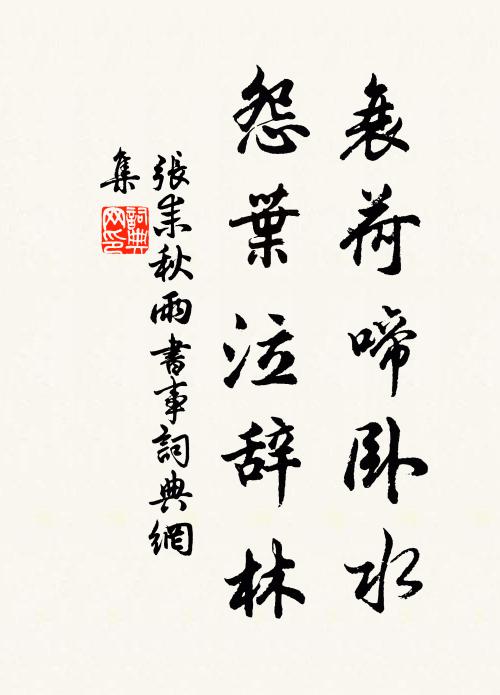 衰荷啼卧水
怨葉泣辞林
張耒秋雨書事詞典網
集
詞典
网印